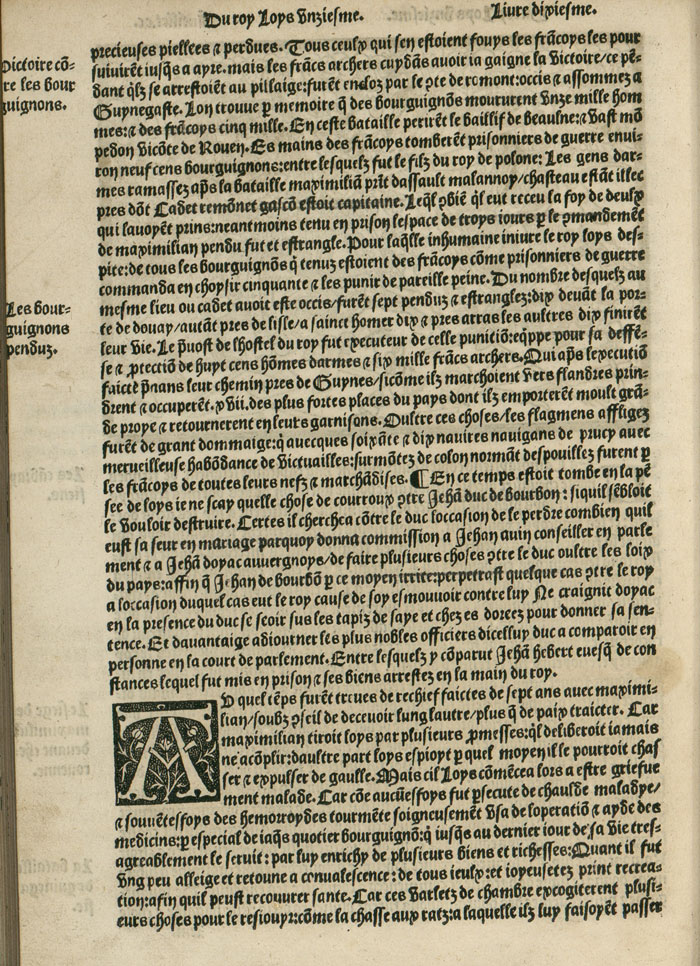 Du roy Loys Vnziesme.
Liure dixiesme.
precieuses piellees & perdues. Tous ceulx qui sen estoient fouys les frãcoys les pour
suiuirẽt iusq̃s a ayre. mais les frãcs archers cuydãs auoir ia gaigne la Victoire/ce pẽ-
dant q̃lz se arrestoiẽt au pillaige:furẽt encloz par le ꝯte de romont:occis & assommez a
Guynegaste. Lon trouue p memoire q̃ des bourguignõs moururent Vnze mille hom
mes:& des frãcoys cinq mille. En ceste bataille perirẽt le baillif de beaulne:& Vast mõ
pedon Vicõte de Rouen. Es mains des frãcoys tomberẽt prisonniers de guerre enui-
ron neuf cens bourguignons:entre lesquelz fut le filz du roy de polone: Les gens dar-
mes ramassez ap̃s la bataille maximiliã prĩt dassault malannoy/chasteau estãt illec
pres dõt Cadet remõnet gascõ estoit capitaine. Leq̃l ꝯbiẽ q̃l eut receu la foy de deulx
qui lauoyẽt prins:neantmoins tenu en prison lespace de troys iours p le ꝯmandemẽt
de maximilian pendu fut et estrangle. Pour laq̃lle inhumaine iniure le roy loys des-
pite:de tous les bourguignõs q̃ tenuz estoient des frãcoys cõme prisonniers de guerre
commanda en choysir cinquante & les punir de pareille peine. Du nombre desquelz au
mesme lieu ou cadet auoit este occis/furẽt sept penduz & estranglez:dix deuãt la por-
te de douay/autãt pres de lisle/a sainct homer dix & pres arras les aultres dix finirẽt
leur Vie. Le p̃uost de lhostel du roy fut executeur de celle punitiõ:eq̃ppe pour sa deffẽ-
se & ꝓtectiõ de huyt cens hõmes darmes & six mille frãcs archers. Qui ap̃s lexecutiõ
faicte p̃nans leur chemin pres de Guynes/sicõme ilz marchoient Vers flandres prin-
drent & occuperẽt. xVii. des plus fortes places du pays dont ilz emporterẽt moult grã-
de proye & retournerent en leurs garnisons. Oultre ces choses/les flagmens affligez
furẽt de grant dommaige:q̃ auecques soixãte & dix nauires nauigans de prucy auec
merueilleuse habõdance de Victuailles:surmõtez de colon normãt despouillez furent p
les frãcoys de toutes leurs nefz & marchãdises. ¶ En ce temps estoit tombe en la pẽ
see de loys ie ne scay quelle chose de courroux ꝯtre Jehã duc de bourbon: siquil sẽbloit
le Vouloir destruire. Certes il chercheа cõtre le duc loccasion de le perdre combien quil
eust sa seur en mariage parquoy donna commission a Jehan auin conseiller en parle
ment & a Jehã doyac auuergnoys/de faire plusieurs choses ꝯtre le duc oultre les loix
du pays:affin q̃ Jehan de bourbõ p ce moyen irrite:perpetrast quelque cas ꝯtre le roy
a loccasion duquel cas eut le roy cause de soy esmouuoir contre luy Ne craignit doyac
en la presence du duc se seoir sus les tapiz de saye et chezes dorees pour donner sa sen-
tence. Et dauantaige adiourner les plus nobles officiers dicelluy duc a comparoir en
personne en la court de parlement. Entre lesquelz y cõparut Jehã hebert euesq̃ de con
stances lequel fut mis en prison & ses biens arrestez en la main du roy.
AV quel tẽps furẽt treues de rechief faictes de sept ans auec maximi-
lian/soubz ꝯseil de deceuoir lung lautre/plus q̃ de paix traicter. Car
maximilian tiroit loys par plusieurs ꝓmesses:q̃l deliberoit iamais
ne acõplir:daultre part loys espioyt p quel moyen il le pourroit chas
ser & expulser de gaulle. Mais cil Loys cõmẽcea lors a estre griefue
ment malade. Car cõe aucũesfoys fut psecute de chaulde maladye/
& souuẽtesfoys des hemoroydes tourmẽte soigneusemẽt Vsa de loperatiõ & ayde des
medicins:p especial de iaq̃s quotier bourguignõ:q̃ iusq̃s au dernier iour de sa Vie tres-
agreablement le seruit: par luy enrichy de plusieurs biens et richesses:Quant il fut
Vng peu alleige et retoune a conualescence: de tous ieulx:et ioyeusetez print recrea-
tion:afin quil peust recouurer sante. Car ces Varletz de chambre excogiterent plusi-
eurs choses pour le resiouyr:cõme la chasse aux ratz:a laquelle ilz luy faisoyẽt passer
Victoire cõ-
tre les bour
guignons.
Les bour-
guignons
penduz.